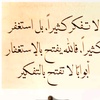 لا تفكر كثيراً، بل استغفر
كثيراً، فالله يفتح بالاستغفار
أبوابًا لا تفتح بالتفكير